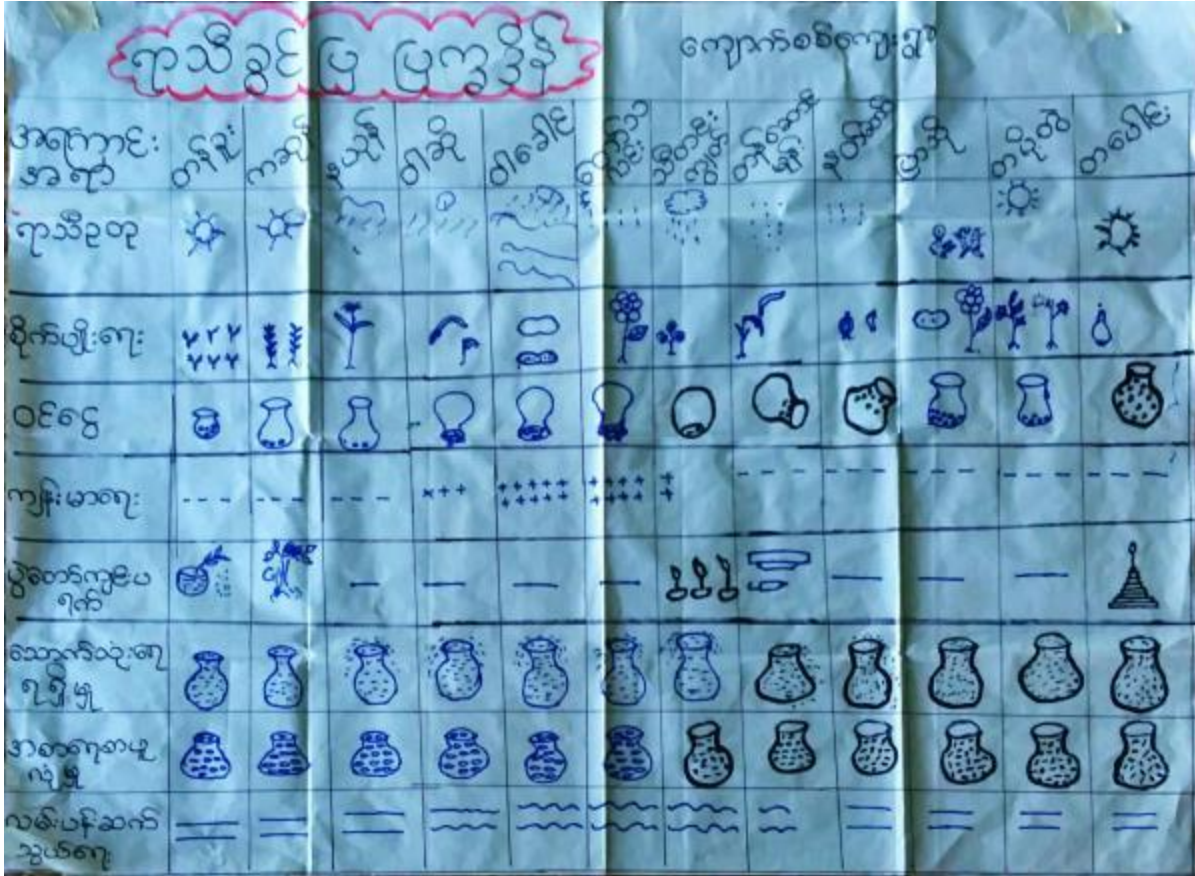 ရာသီခွင်ပြ ပြက္ခဒိန်
ကျောက်စစ်ကျေးရွာ
အကြောင်း
အရာ
တန်ခူး
ကဆုန်
နယုန်
ဝါဆို
ဝါခေါင်
တော်သ
လင်း
သီတင်း
ကျွတ်
တန်ဆောင်
မုန်း
နတ်တော်
ပြာသို
တပို့တွဲ
တပေါင်း
ရာသီဥတု
စိုက်ပျိုးရေး
ဝင်ငွေ
ကျန်းမာရေး
ပွဲတော်ကျင်းပ
ရက်
သောက်သုံးရေ
ရရှိမှု
အစားရေစာဖူ
လုံမှု
လမ်းပန်းဆက်
သွယ်ရေး